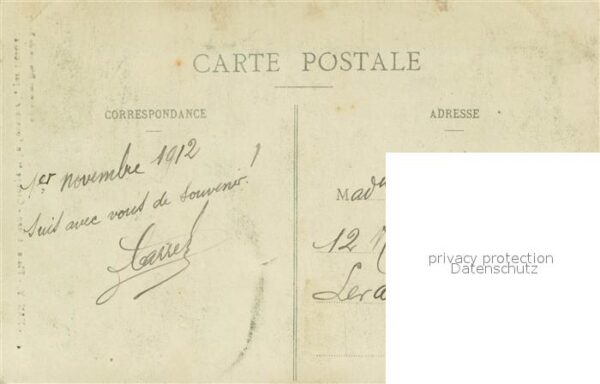 CARTE POSTALE
CORRESPONDANCE
ADRESSE
1er novembre 1912
Suis avec vous de souvenir!
Mad
12
privacy protection
Datenschutz